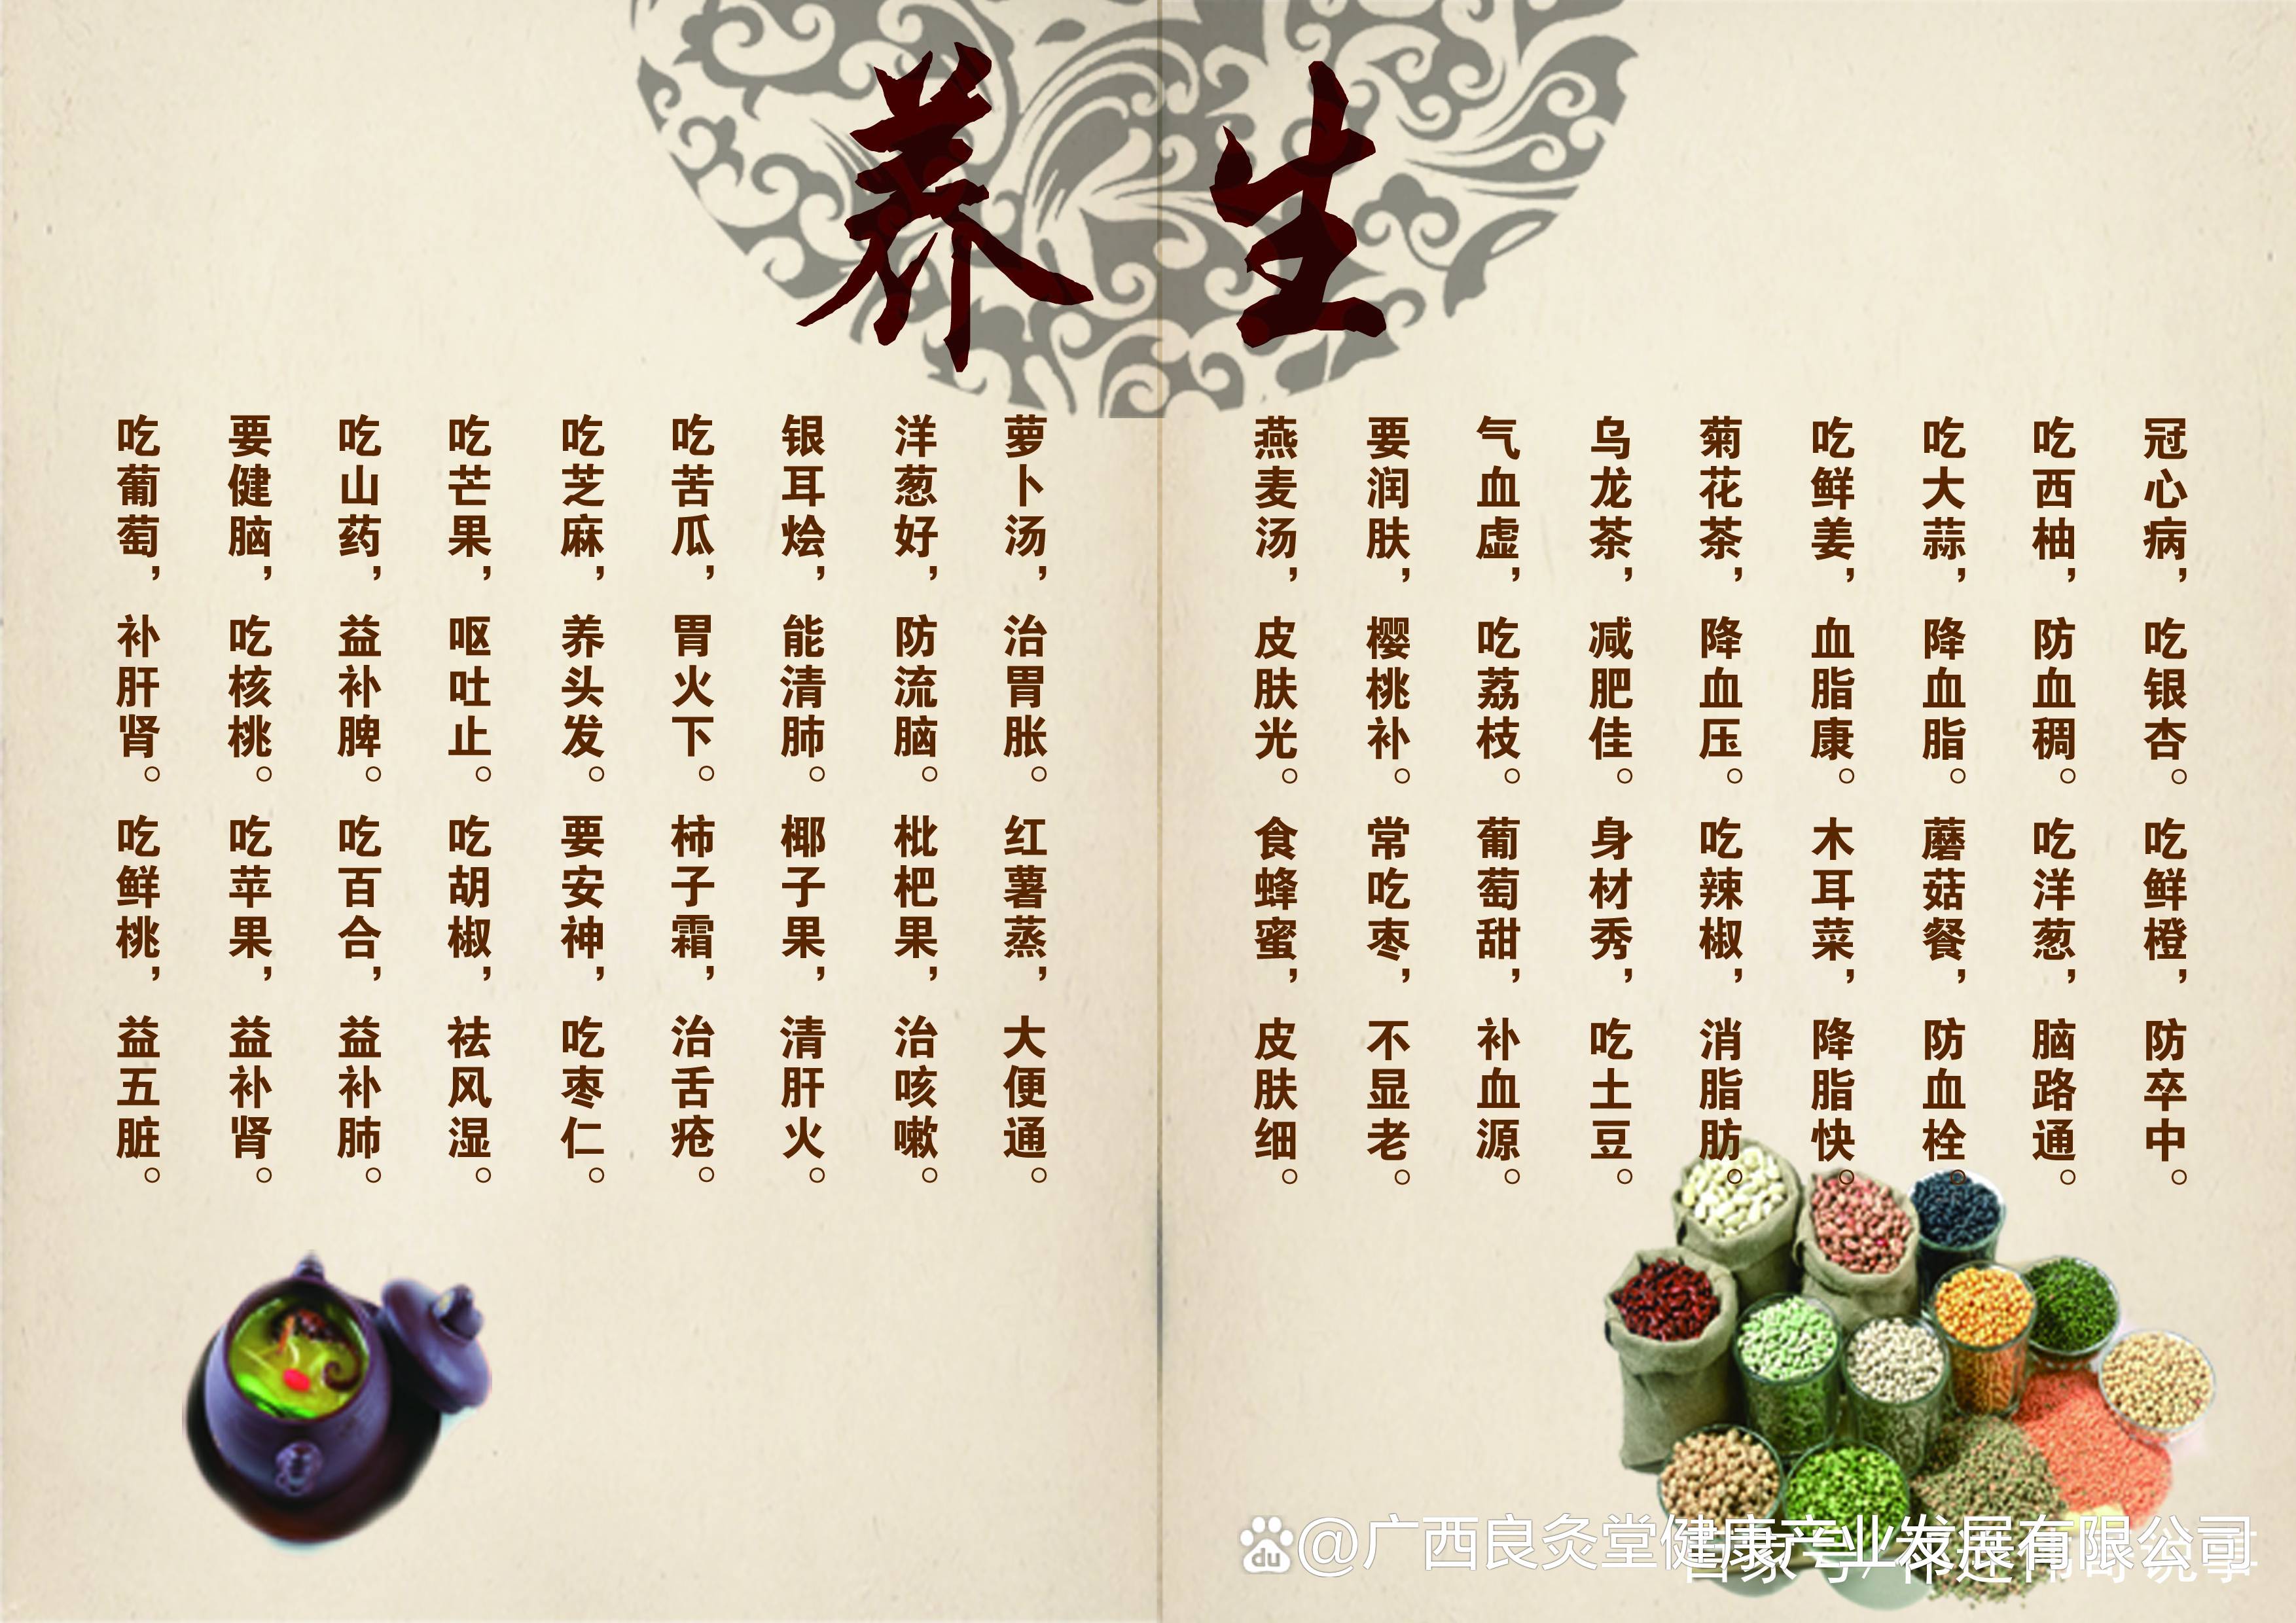 养生
冠心病，吃银杏。吃鲜橙，防卒中。
吃西柚，防血稠。吃洋葱，脑路通。
吃大蒜，降血脂。蘑菇餐，防血栓。
吃鲜姜，血脂康。木耳菜，降脂快。
菊花茶，降血压。吃辣椒，消脂肪。
乌龙茶，减肥佳。身材秀，吃土豆。
气血虚，吃荔枝。葡萄甜，补血源。
要润肤，樱桃补。常吃枣，不显老。
燕麦汤，皮肤光。食蜂蜜，皮肤细。
萝卜汤，治胃胀。红薯蒸，大便通。
洋葱好，防流脑。枇杷果，治咳嗽。
银耳烩，能清肺。椰子果，清肝火。
吃苦瓜，胃火下。柿子霜，治舌疮。
吃芝麻，养头发。要安神，吃枣仁。
吃芒果，呕吐止。吃胡椒，祛风湿。
吃山药，益补脾。吃百合，益补肺。
要健脑，吃核桃。吃苹果，益补肾。
吃葡萄，补肝肾。吃鲜桃，益五脏。
du @广西良灸堂健康产业发展有限公司